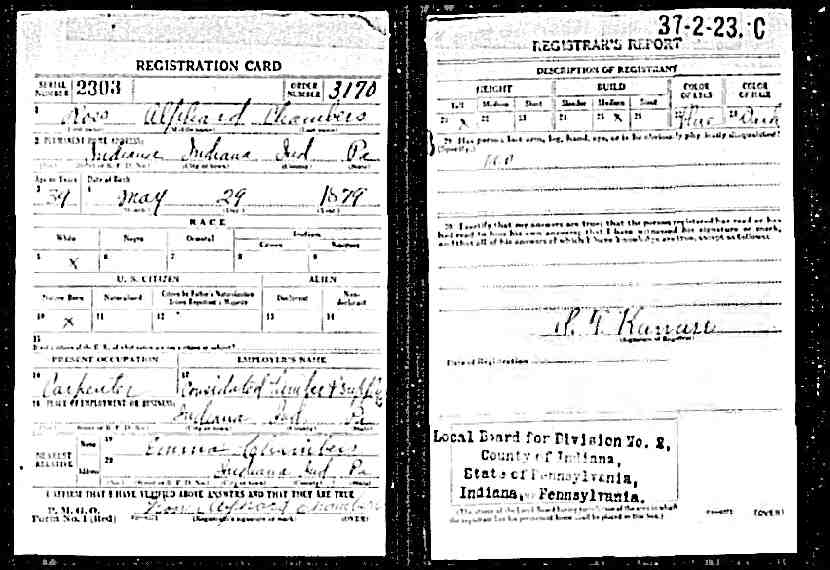 REGISTRATION CARD
SERIAL NUMBER 2303
ORDER NUMBER 3170
1 Ross Alphard Chambers
(First name) (Middle name) (Last name)
2 PERMANENT HOME ADDRESS:
Indiana Indiana Ind Pa
(No.) (Street or R. F. D. No.) (City or town) (County) (State)
Age in Years Date of Birth
3 39 4 May 29 1879
(Month.) (Day.) (Year.)
RACE
White Negro Oriental Indian
Citizen Noncitizen
5 X 6 7 8 9
U. S. CITIZEN ALIEN
Native Born Naturalized Citizen by Father's Naturalization Before Registrant's Majority Declarant Non-declarant
10 X 11 12 13 14
15
If not a citizen of the U. S., of what nation are you a citizen or subject?
PRESENT OCCUPATION EMPLOYER'S NAME
16 Carpenter 17 Consolidated Lumber & Supply
18 PLACE OF EMPLOYMENT OR BUSINESS:
Indiana Ind Pa
(No.) (Street or R. F. D. No.) (City or town) (County) (State)
NEAREST RELATIVE Name 19 Emma Chambers
Address 20 Indiana Ind Pa
(No.) (Street or R. F. D. No.) (City or town) (County) (State)
I AFFIRM THAT I HAVE VERIFIED ABOVE ANSWERS AND THAT THEY ARE TRUE
P. M. G. O.
Form No. 1 (Red) Chambers
(Registrant's signature or mark) (OVER)
37-2-23. C
REGISTRAR'S REPORT
DESCRIPTION OF REGISTRANT
HEIGHT BUILD COLOR OF EYES COLOR OF HAIR
Tall Medium Short Slender Medium Stout
21 X 22 23 24 25 X 26 27 Blue 28 Dark
29 Has person lost arm, leg, hand, eye, or is he obviously physically disqualified?
(Specify.)
no
30 I certify that my answers are true; that the person registered has read or has
had read to him his own answers; that I have witnessed his signature or mark,
and that all of his answers of which I have knowledge are true, except as follows:
S. T.
(Signature of Registrar)
Date of Registration
Local Board for Division No. 2,
County of Indiana,
State of Pennsylvania,
Indiana, Pennsylvania.
(The stamp of the Local Board having jurisdiction of the area in which
the registrant has his permanent home shall be placed in this box.)
(OVER)